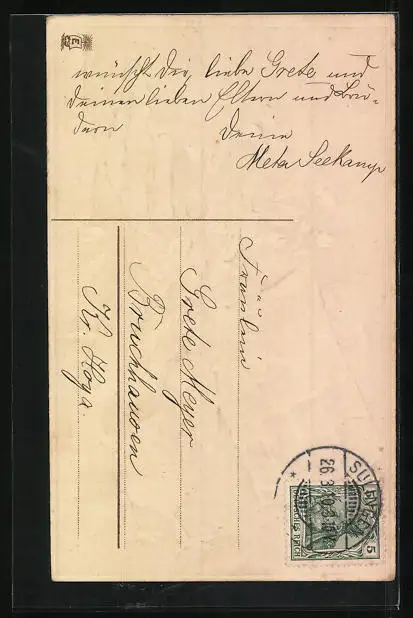 wünscht Dir, liebe Grete und
Deinen lieben Eltern und Brü-
dern
Deine
Meta Seekamp
Fräulein
Grete Meyer
Bruchhausen
Kr. Hoya.
SULINGEN
26.3.10.
5
DEUTSCHES REICH